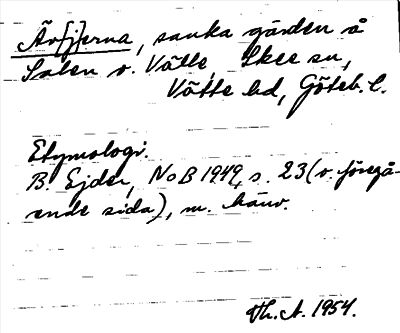 Ävjjorna, sanka gärden å
Salen v. Vätte, Skee sn,
Vätte hd, Göteb. l.
Etymologi.
B. Ejder, NoB 1949, s. 23 (o. föregå-
ende sida), m. hänv.
Th. A. 1954.